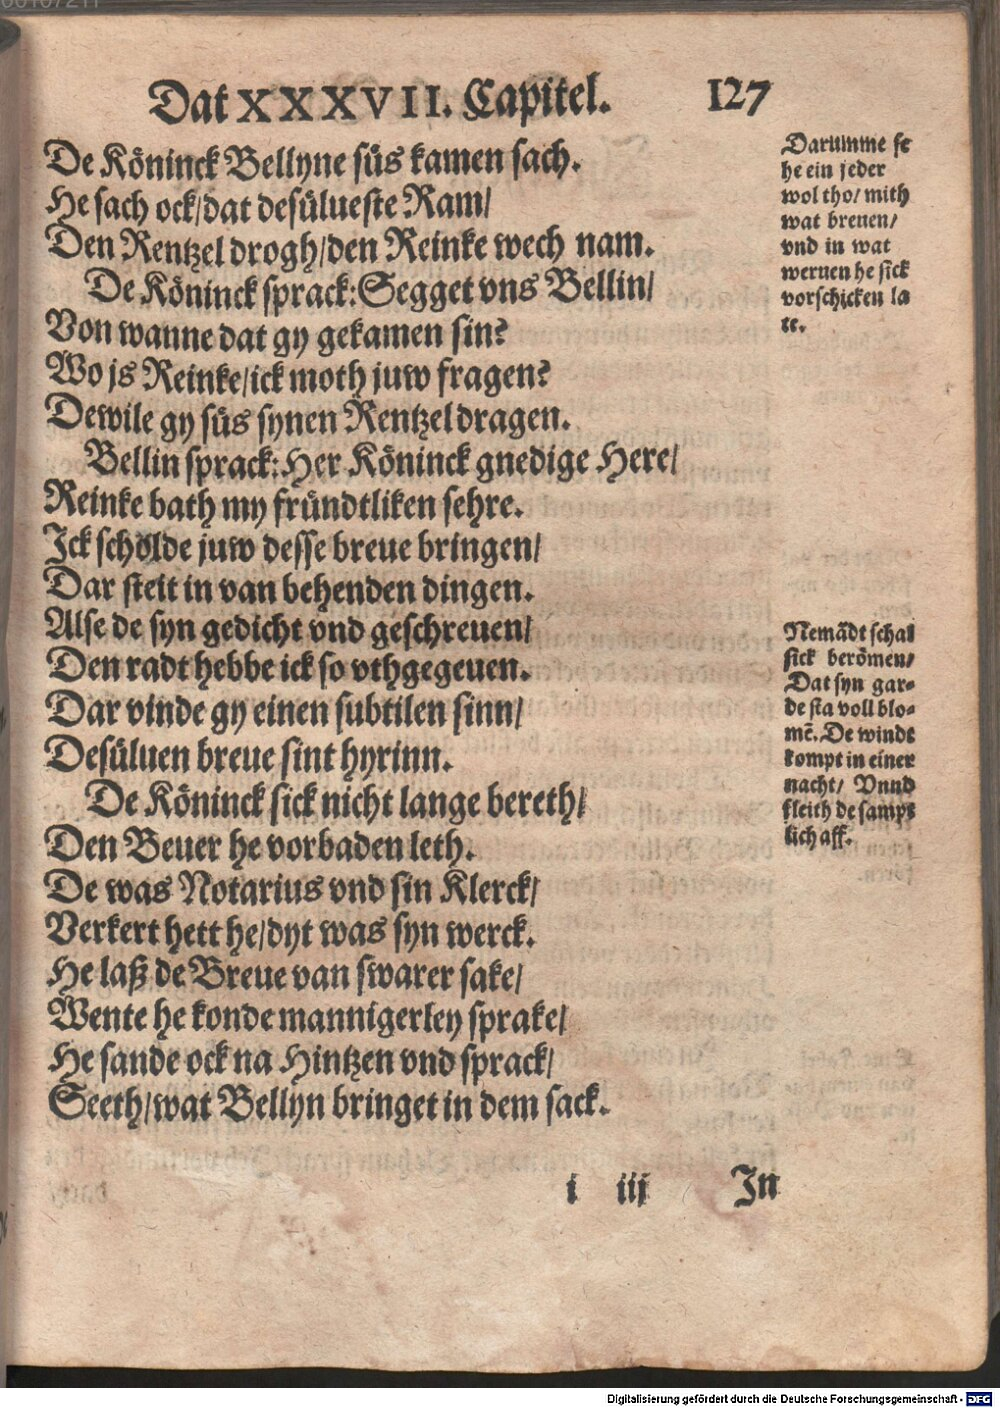 Dat XXXVII. Capitel. 127
De Köninck Bellyne süs kamen sach.
He sach ock/dat desülueste Ram/
Den Rentzel drogh/den Reinke wech nam.
De Köninck sprack: Segget vns Bellin/
Von wanne dat gy gekamen sin?
Wo js Reinke/ick moth juw fragen?
Dewile gy süs synen Rentzel dragen.
Bellin sprack: Her Köninck gnedige Here/
Reinke bath my fründtliken sehre.
Ick scholde juw desse breue bringen/
Dar steit in van behenden dingen.
Alse de syn gedicht vnd geschreuen/
Den radt hebbe ick so vthgegeuen.
Dar vinde gy einen subtilen sinn/
Desüluen breue sint hyrinn.
De Köninck sick nicht lange bereth/
Den Beuer he vorbaden leth.
De was Notarius vnd sin Klerck/
Verkert hett he/dyt was syn werck.
He laß de Breue van swarer sake/
Wente he konde mannigerley sprake/
He sande ock na Hintzen vnd sprack/
Seeth/wat Bellyn bringet in dem sack.
Darumme se
he ein jeder
wol tho/ mith
wat breuen/
vnd in wat
weruen he sick
vorschicken la
te.
Nemãdt schal
sick berömen/
Dat syn gar-
de sta voll blo-
mẽ. De windt
kompt in einer
nacht/ Vnnd
sleith de samps
lich aff.
i iij In
Digitalisierung gefördert durch die Deutsche Forschungsgemeinschaft - DFG